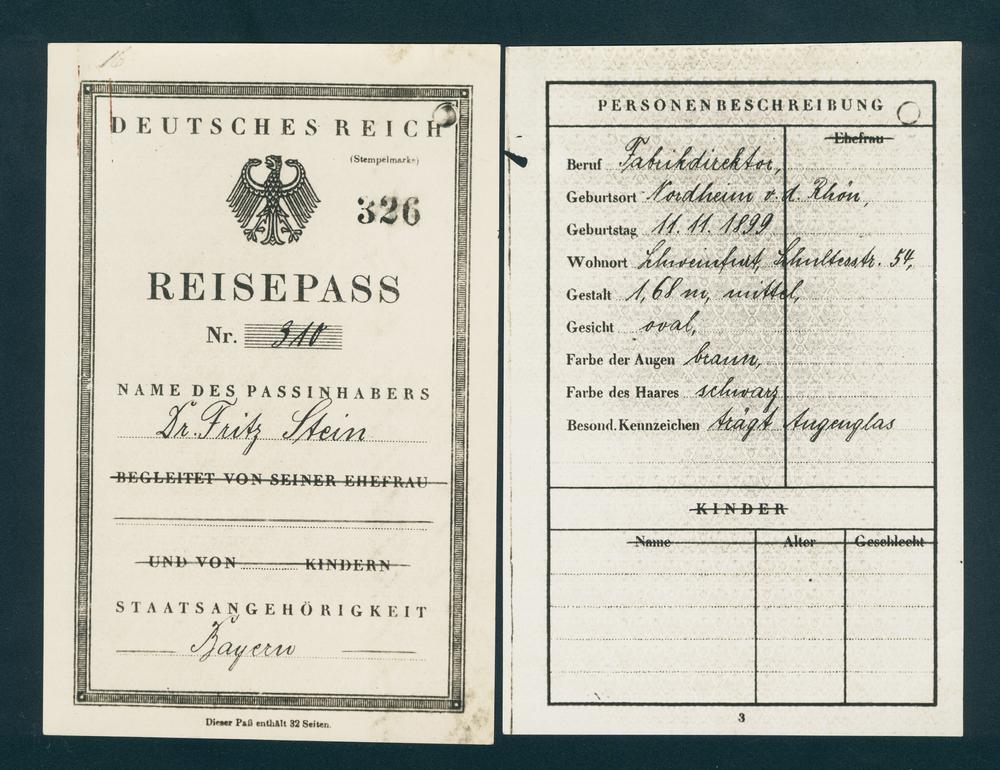 DEUTSCHES REICH
(Stempelmarke)
326
REISEPASS
Nr. 310
NAME DES PASSINHABERS
Dr. Fritz Stein
BEGLEITET VON SEINER EHEFRAU
UND VON KINDERN
STAATSANGEHÖRIGKEIT
Bayern
Dieser Paß enthält 32 Seiten.
PERSONENBESCHREIBUNG
Ehefrau
Beruf Fabrikdirektor,
Geburtsort Nordheim v. d. Rhön,
Geburtstag 11. 11. 1899
Wohnort Schweinfurt, Schultesstr. 54,
Gestalt 1,68 m, mittel,
Gesicht oval,
Farbe der Augen braun,
Farbe des Haares schwarz
Besond. Kennzeichen trägt Augenglas
KINDER
Name Alter Geschlecht
3